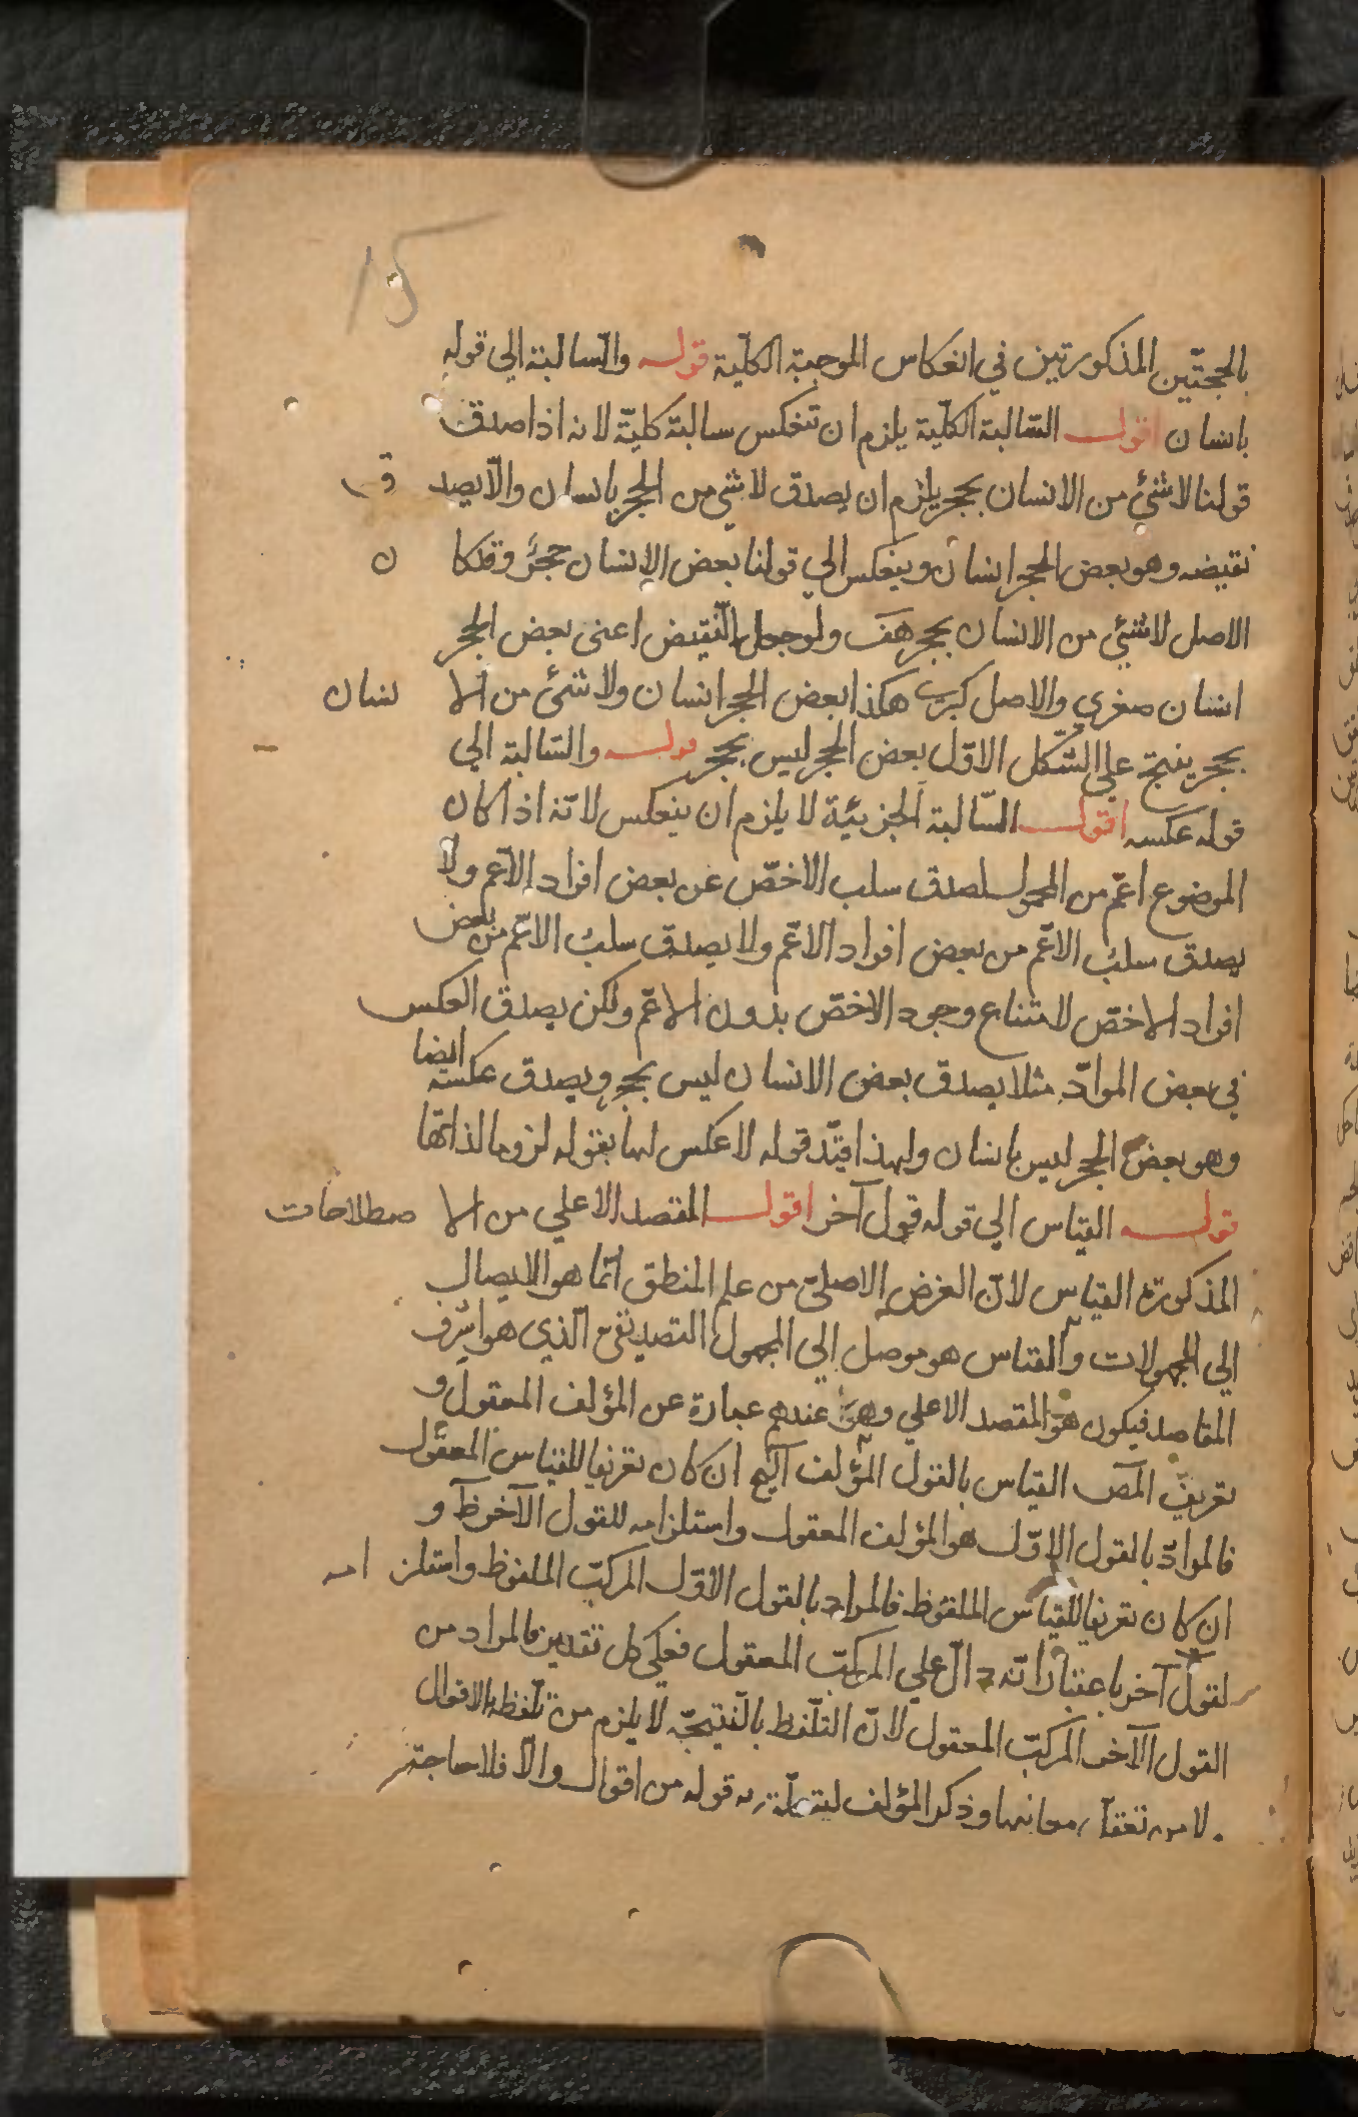 15
بالحجتّين المذكورتين في انعكاس الموجبة الكلّية قوله والسّالبة الي قوله
بانسان اقول السّالبة الكلّية يلزم ان تنعكس سالبة كليّة لانه اذا صدق
قولنا لا شئ من الانسان بحجر يلزم ان يصدق لا شئ من الحجر بانسان والّا يصد ق
نقيضه وهو بعض الحجر انسان وينعكس الي قولنا بعض الانسان حجرٌ وقد كا ن
الاصل لا شئ من الانسان بحجر هف ولو جعل النّقيض اعنى بعض الحجر
انسان صغري والاصل كبري هكذا بعض الحجر انسان ولا شئ من الا نسان
بحجر ينتج علي الشّكل الاوّل بعض الحجر ليس بحجر قوله والسّالبة الي
قوله عكسه اقول السّالبة الجزئيّة لا يلزم ان ينعكس لانّه اذا كان
الموضوع اعّم من المحمول لصدق سلب الاخصّ عن بعض افراد الاعّم ولا
يصدق سلب الاعّم من بعض افراد الاعّم ولا يصدق سلب الاعّم من بعض
افراد الاخصّ لامتناع وجود الاخصّ بدون الاعّم ولكن يصدق العكس
في بعض الموادّ مثلا يصدق بعض الانسان ليس بحجر ويصدق عكسه ايضا
وهو بعض الحجر ليس بانسان ولهذا قيّد قوله لا عكس لها بقوله لزوما لذاتها
قوله القياس الي قوله قول آخر اقول المقصد الاعلي من الا صطلاحات
المذكورة القياس لانّ الغرض الاصلّي من علم المنطق انّما هو الايصال
الي المجهولات والقياس هو موصل الي المجهول التصديقي الّذي هو اشرف
المقاصد فيكون هو المقصد الاعلي وهو عندهم عبارة عن المؤلف المعقول و
تعريف المص القياس بالقول المؤلف الخ ان كان تعريفا للقياس المعقول
فالمرادّ بالقول الاوّل هو المؤلف المعقول واستلزامه للقول الآخر ظ و
ان كان تعريفا للقياس الملفوظ فالمراد بالقول الاوّل المركبّ الملفوظ واستلز امه
لقول آخر باعتبار انّه دالّ علي المركبّ المعقول فعلي كل تقدير فالمراد من
القول الآخر المركبّ المعقول لانّ التلّفظ بالنّتيجّة لا يلزم من تلّفظ بالاقوال
لا من تعقل معانيها وذكر المؤلف ليتعلّق به قوله من اقوال والّا فلا حاجة